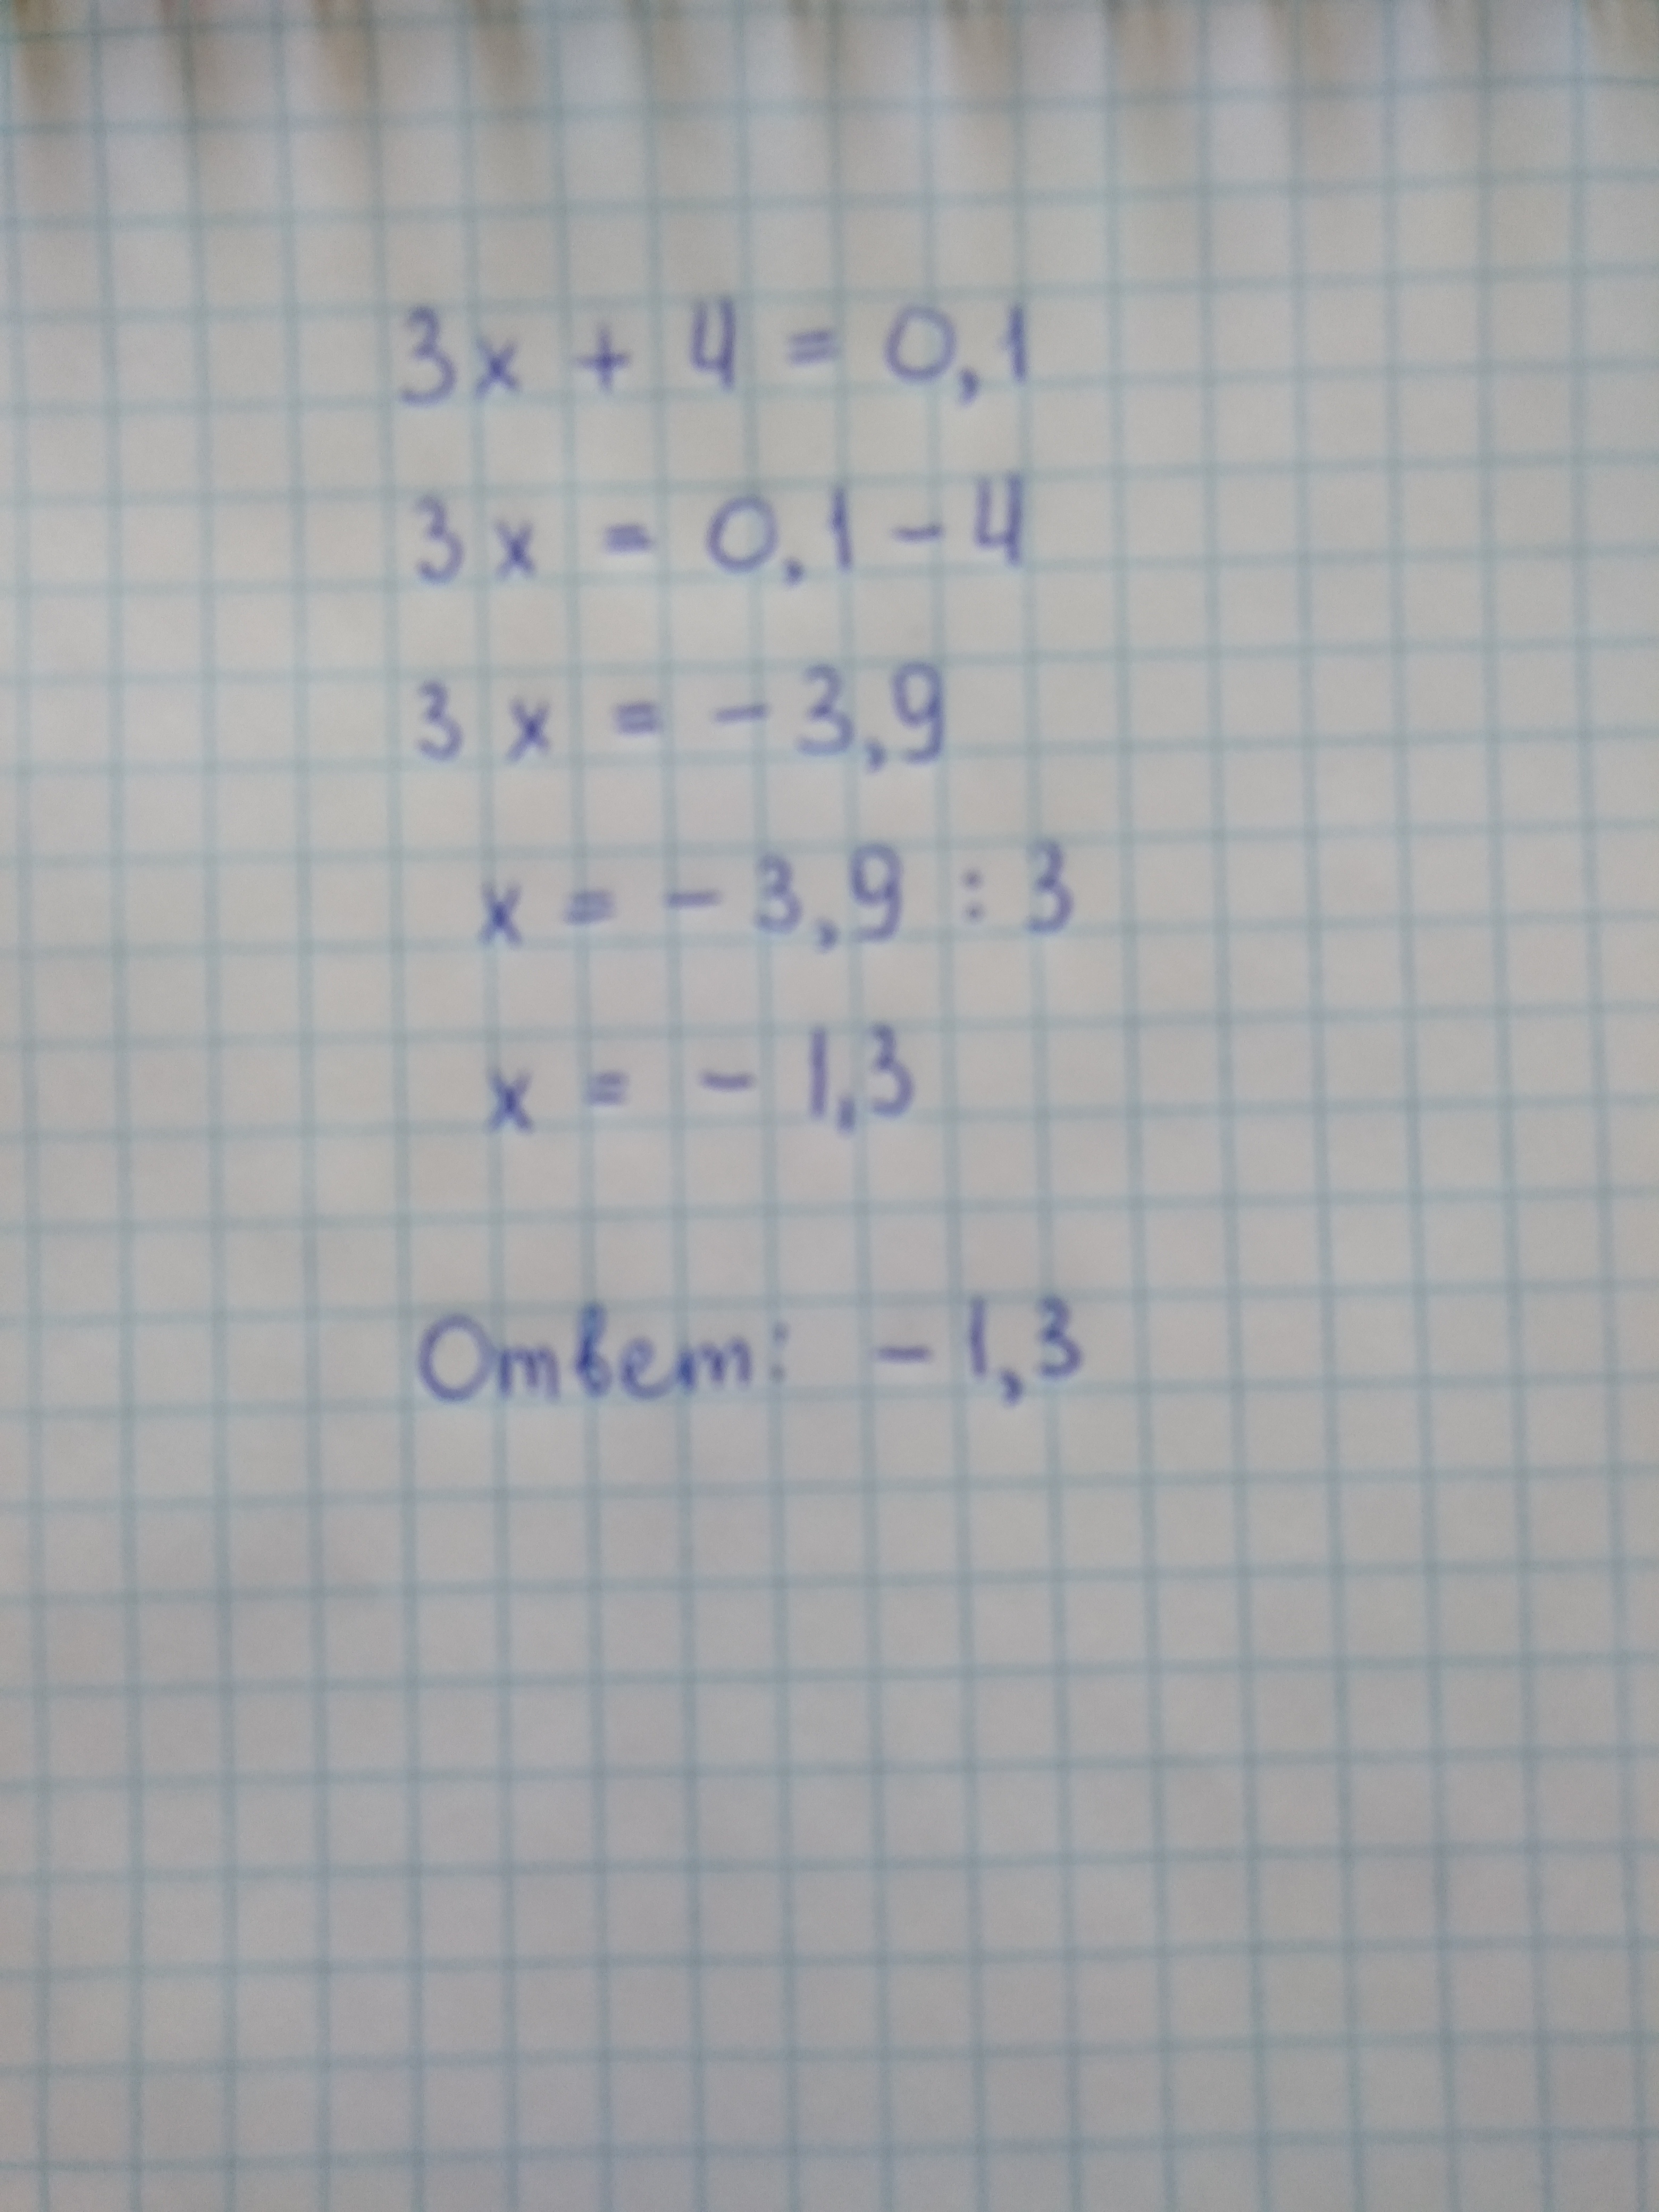 3x + 4 = 0,1
3x = 0,1 - 4
3x = - 3,9
x = - 3,9 : 3
x = - 1,3
Ответ: - 1,3